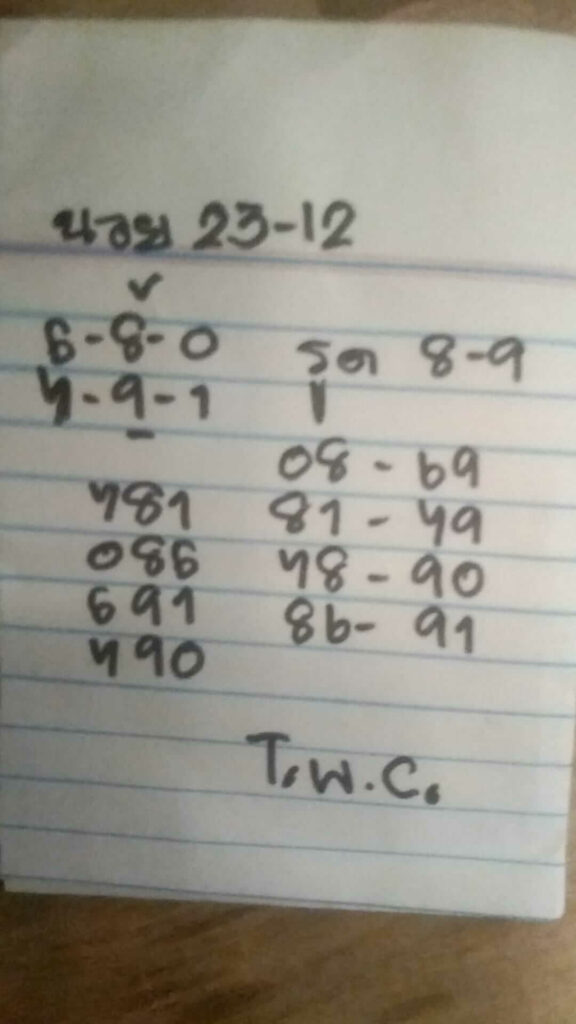 นอย 23-12
6-8-0 รูด 8-9
4-9-1
08-69
481 81-49
086 48-90
691 86-91
490
T.W.C.